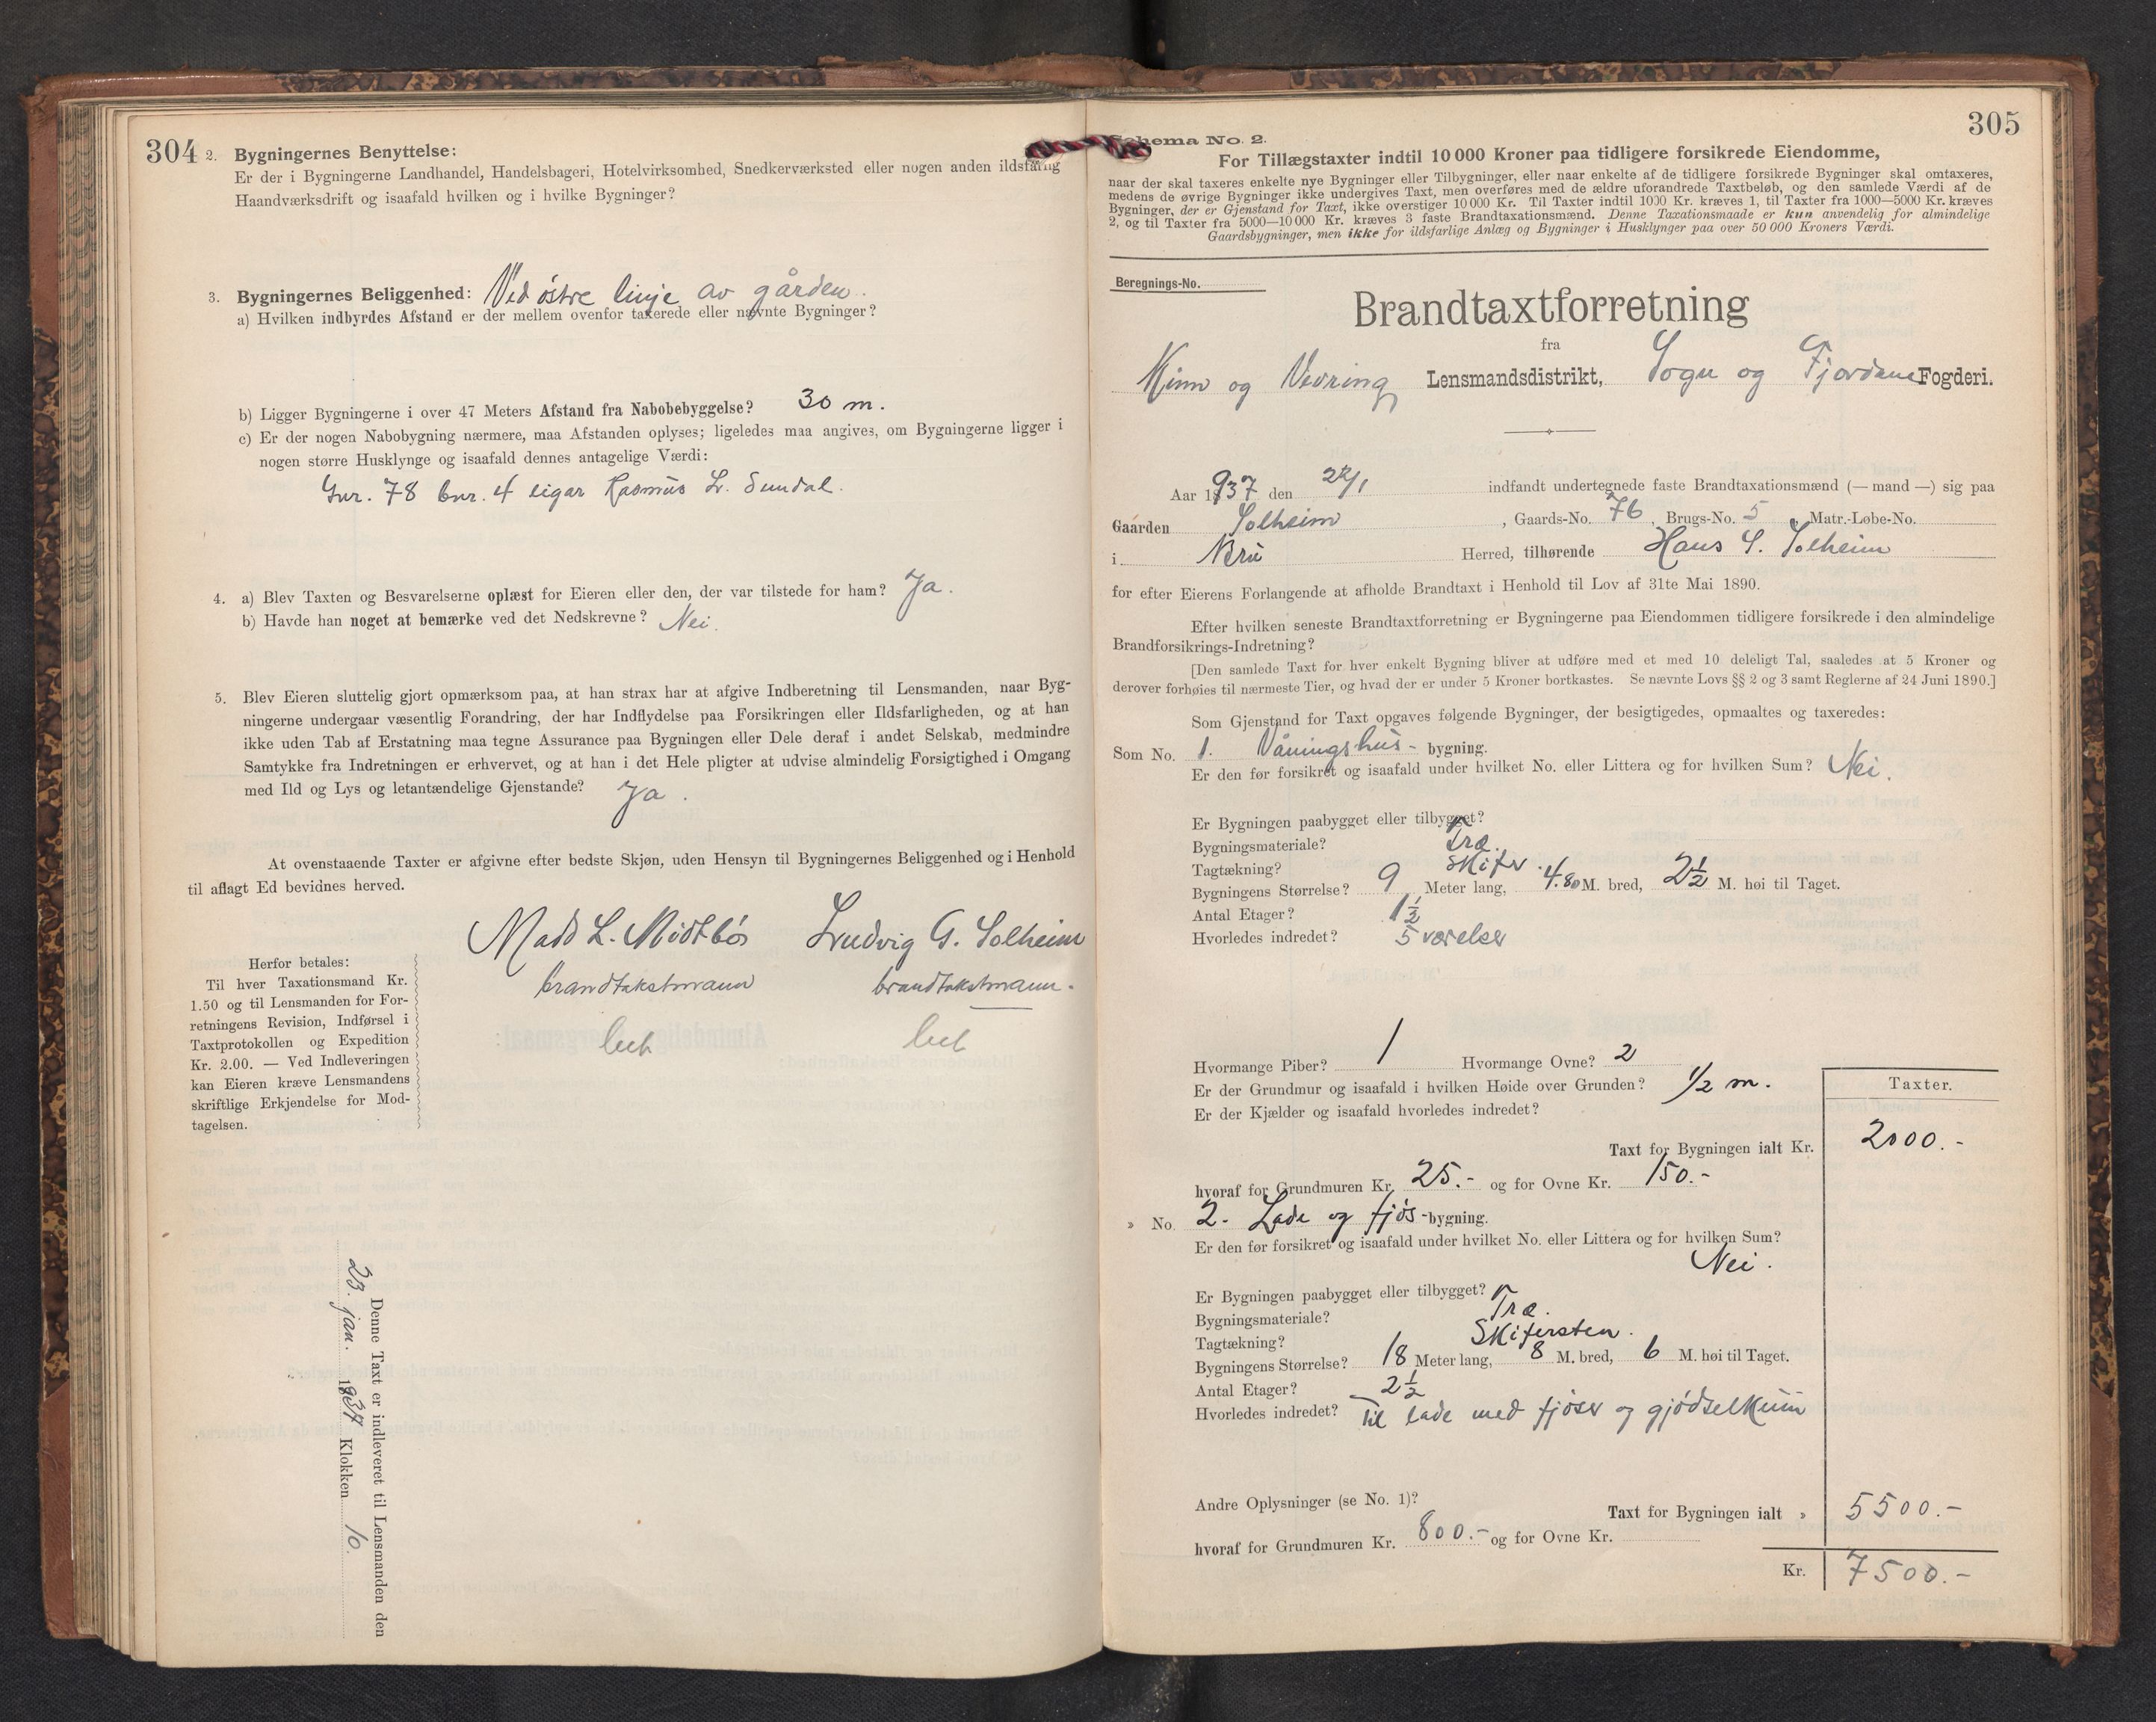 304
2. Bygningernes Benyttelse:
Er der i Bygningerne Landhandel, Handelsbageri, Hotelvirksomhed, Snedkerværksted eller nogen anden ildsfarlig
Haandværksdrift og isaafald hvilken og i hvilke Bygninger?
3. Bygningernes Beliggenhed: Ved östre linje av gården.
a) Hvilken indbyrdes Afstand er der mellem ovenfor taxerede eller nævnte Bygninger?
b) Ligger Bygningerne i over 47 Meters Afstand fra Nabobebyggelse? 30 m.
c) Er der nogen Nabobygning nærmere, maa Afstanden oplyses; ligeledes maa angives, om Bygningerne ligger i
nogen større Husklynge og isaafald dennes antagelige Værdi:
Gnr. 78 bnr. 4 eigar Rasmus L. Sundal.
4. a) Blev Taxten og Besvarelserne oplæst for Eieren eller den, der var tilstede for ham? Ja.
b) Havde han noget at bemærke ved det Nedskrevne? Nei.
5. Blev Eieren sluttelig gjort opmærksom paa, at han strax har at afgive Indberetning til Lensmanden, naar Byg-
ningerne undergaar væsentlig Forandring, der har Indflydelse paa Forsikringen eller Ildsfarligheden, og at han
ikke uden Tab af Erstatning maa tegne Assurance paa Bygningen eller Dele deraf i andet Selskab, medmindre
Samtykke fra Indretningen er erhvervet, og at han i det Hele pligter at udvise almindelig Forsigtighed i Omgang
med Ild og Lys og letantændelige Gjenstande? Ja.
At ovenstaaende Taxter er afgivne efter bedste Skjøn, uden Hensyn til Bygningernes Beliggenhed og i Henhold
til aflagt Ed bevidnes herved.
Mads L. Midtbö Ludvig G. Solheim
brandtakstmann brandtakstmann.
Herfor betales:
Til hver Taxationsmand Kr.
1.50 og til Lensmanden for For-
retningens Revision, Indførsel i
Taxtprotokollen og Expedition
Kr. 2.00. — Ved Indleveringen
kan Eieren kræve Lensmandens
skriftlige Erkjendelse for Mod-
tagelsen.
Denne Taxt er indleveret til Lensmanden den
23. jan. 1937 Klokken 10.
305
Schema No. 2.
For Tillægstaxter indtil 10 000 Kroner paa tidligere forsikrede Eiendomme,
naar der skal taxeres enkelte nye Bygninger eller Tilbygninger, eller naar enkelte af de tidligere forsikrede Bygninger skal omtaxeres,
medens de øvrige Bygninger ikke undergives Taxt, men overføres med de ældre uforandrede Taxtbeløb, og den samlede Værdi af de
Bygninger, der er Gjenstand for Taxt, ikke overstiger 10 000 Kr. Til Taxter indtil 1000 Kr. kræves 1, til Taxter fra 1000—5000 Kr. kræves
2, og til Taxter fra 5000—10 000 Kr. kræves 3 faste Brandtaxationsmænd. Denne Taxationsmaade er kun anvendelig for almindelige
Gaardsbygninger, men ikke for ildsfarlige Anlæg og Bygninger i Husklynger paa over 50 000 Kroners Værdi.
Beregnings-No.
Brandtaxtforretning
fra
Kinn og Vevring Lensmandsdistrikt, Sogn og Fjordane Fogderi.
Aar 1937 den 22/1 indfandt undertegnede faste Brandtaxationsmænd (— mand —) sig paa
Gaarden Solheim, Gaards-No. 76, Brugs-No. 5, Matr.-Løbe-No.
i Bru Herred, tilhørende Hans S. Solheim
for efter Eierens Forlangende at afholde Brandtaxt i Henhold til Lov af 31te Mai 1890.
Efter hvilken seneste Brandtaxtforretning er Bygningerne paa Eiendommen tidligere forsikrede i den almindelige
Brandforsikrings-Indretning?
[Den samlede Taxt for hver enkelt Bygning bliver at udføre med et med 10 deleligt Tal, saaledes at 5 Kroner og
derover forhøies til nærmeste Tier, og hvad der er under 5 Kroner bortkastes. Se nævnte Lovs §§ 2 og 3 samt Reglerne af 24 Juni 1890.]
Som Gjenstand for Taxt opgaves følgende Bygninger, der besigtigedes, opmaaltes og taxeredes:
Som No. 1. Våningshus-bygning.
Er den før forsikret og isaafald under hvilket No. eller Littera og for hvilken Sum? Nei.
Er Bygningen paabygget eller tilbygget?
Bygningsmateriale? Træ.
Tagtækning? Skifr.
Bygningens Størrelse? 9 Meter lang, 4.80 M. bred, 2 1/2 M. høi til Taget.
Antal Etager? 1 1/2
Hvorledes indredet? 5 værelser
Hvormange Piber? 1 Hvormange Ovne? 2
Er der Grundmur og isaafald i hvilken Høide over Grunden? 1/2 m.
Er der Kjælder og isaafald hvorledes indredet?
Taxter.
Taxt for Bygningen ialt Kr. 2000.-
hvoraf for Grundmuren Kr. 25.- og for Ovne Kr. 150.-
» No. 2. Lade og fjös-bygning.
Er den før forsikret og isaafald under hvilket No. eller Littera og for hvilken Sum?
Nei.
Er Bygningen paabygget eller tilbygget?
Bygningsmateriale? Træ.
Tagtækning? Skifersten.
Bygningens Størrelse? 18 Meter lang, 8 M. bred, 6 M. høi til Taget.
Antal Etager? 2 1/2
Hvorledes indredet? Til lade med fjöser og gjödselkum
Andre Oplysninger (se No. 1)?
Taxt for Bygningen ialt » 5500.-
hvoraf for Grundmuren Kr. 800.- og for Ovne Kr.
Kr. 7500.-